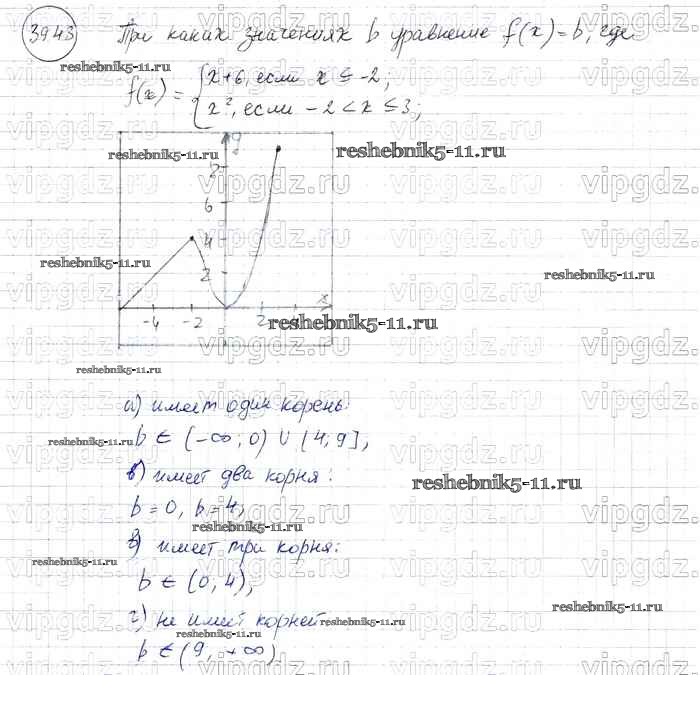 3943 При каких значениях b уравнение f(x)=b, где
reshebnik5-11.ru
f(x) = { x+6, если x ≤ -2;
x², если -2 < x ≤ 3;
reshebnik5-11.ru
reshebnik5-11.ru
y
8
6
4
2
reshebnik5-11.ru
reshebnik5-11.ru
-4 -2 2 x
reshebnik5-11.ru
reshebnik5-11.ru
а) имеет один корень:
b ∈ (-∞; 0) ∪ (4; 9],
reshebnik5-11.ru
б) имеет два корня:
reshebnik5-11.ru
b = 0, b = 4,
reshebnik5-11.ru
в) имеет три корня:
reshebnik5-11.ru
b ∈ (0, 4),
reshebnik5-11.ru
г) не имеет корней
reshebnik5-11.ru
reshebnik5-11.ru
b ∈ (9, +∞)
vipgdz.ru